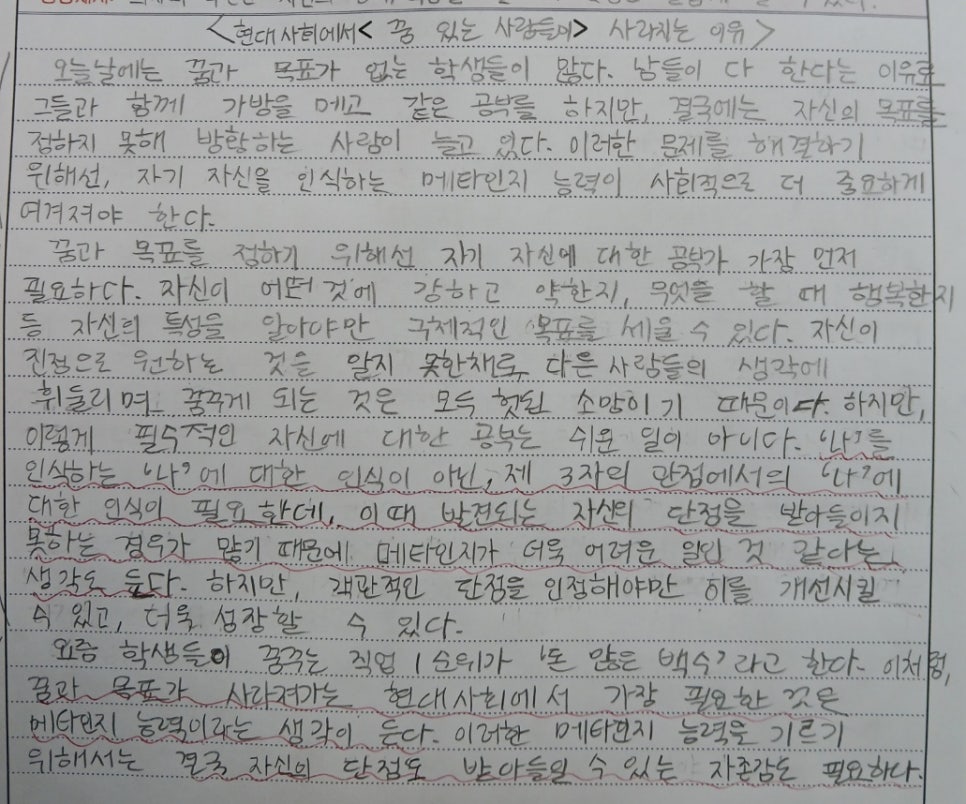 <현대 사회에서< 꿈 있는 사람들이> 사라지는 이유>
오늘날에는 꿈과 목표가 없는 학생들이 많다. 남들이 다 한다는 이유로
그들과 함께 가방을 메고 같은 공부를 하지만, 결국에는 자신의 목표를
정하지 못해 방황하는 사람이 늘고 있다. 이러한 문제를 해결하기
위해선, 자기 자신을 인식하는 메타인지 능력이 사회적으로 더 중요하게
여겨져야 한다.
꿈과 목표를 정하기 위해선 자기 자신에 대한 공부가 가장 먼저
필요하다. 자신이 어떠한 것에 강하고 약한지, 무엇을 할 때 행복한지
등 자신의 특성을 알아야만 구체적인 목표를 세울 수 있다. 자신이
진정으로 원하는 것은 알지 못한채로, 다른 사람들의 생각에
휘둘리며 꿈꾸게 되는 것은 모두 헛된 소망이기 때문이다. 하지만,
이렇게 필수적인 자신에 대한 공부는 쉬운 일이 아니다. '나'를
인식하는 '나'에 대한 인식이 아닌, 제 3자의 관점에서의 '나'에
대한 인식이 필요한데, 이때 발견되는 자신의 단점을 받아들이지
못하는 경우가 많기 때문에 메타인지가 더욱 어려운 일인 것 같다는
생각도 든다. 하지만, 객관적인 단점을 인정해야만 이를 개선시킬
수 있고, 더욱 성장할 수 있다.
요즘 학생들이 꿈꾸는 직업 1순위가 '돈 많은 백수'라고 한다. 이처럼,
꿈과 목표가 사라져가는 현대사회에서 가장 필요한 것은
메타인지 능력이라는 생각이 든다. 이러한 메타인지 능력을 기르기
위해서는 결국 자신의 단점도 받아들일 수 있는 자존감도 필요하다.